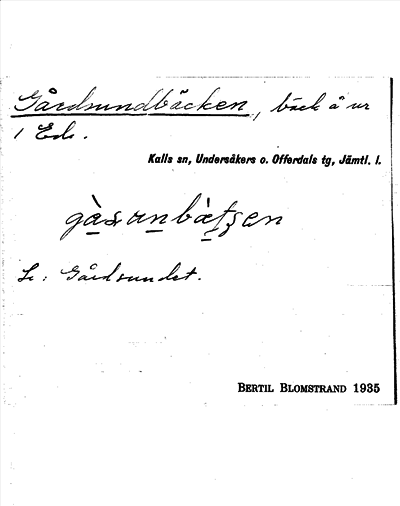 Gårdsundbäcken, bäck å ur
1 Ek.
Kalls sn, Undersåkers o. Offerdals tg, Jämtl. l.
Se: Gårdsundet.
BERTIL BLOMSTRAND 1935